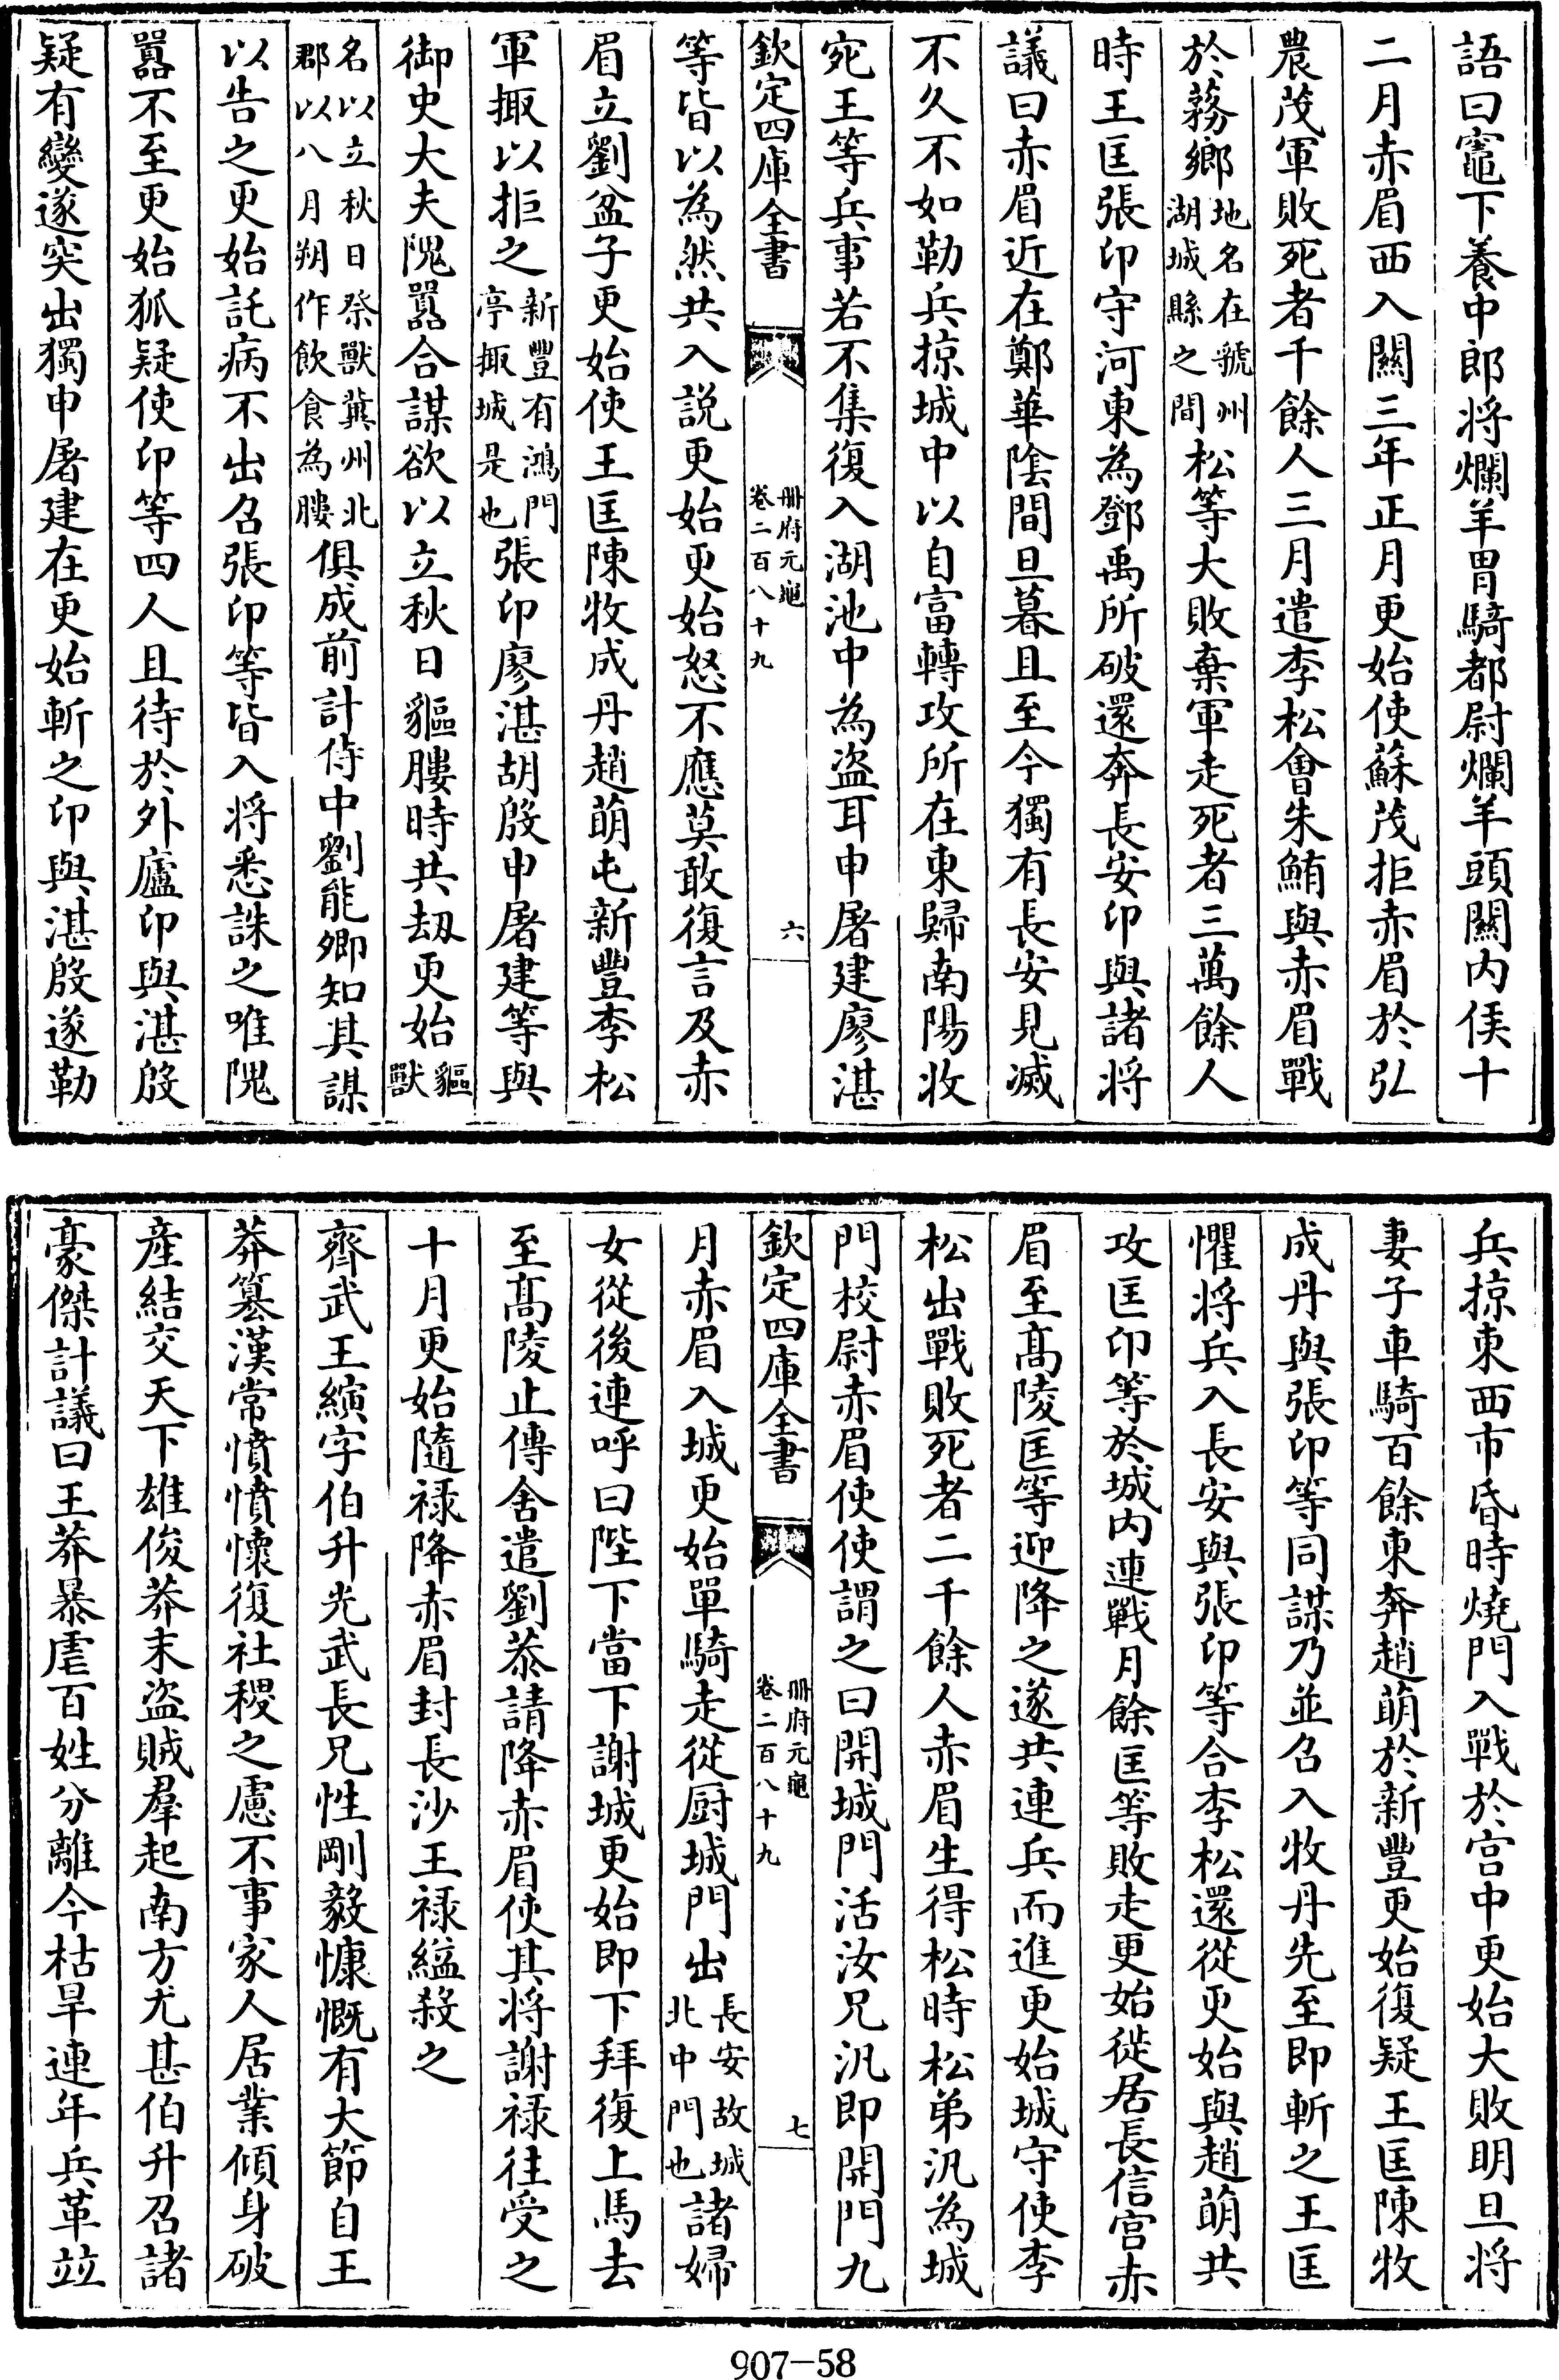 語曰竈下養中郎将爛羊胃騎都尉爛羊頭關内侯十
二月赤眉西入關三年正月更始使蘇茂拒赤眉於弘
農茂軍敗死者千餘人三月遣李松會朱鮪與赤眉戰
於蓩鄉地名在虢州湖城縣之間松等大敗棄軍走死者三萬餘人
時王匡張卬守河東為鄧禹所破還奔長安卬與諸将
議曰赤眉近在鄭華陰間旦暮且至今獨有長安見滅
不久不如勒兵掠城中以自富轉攻所在東歸南陽收
宛王等兵事若不集復入湖池中為盗耳申屠建廖湛
欽定四庫全書
册府元龜
卷二百八十九
六
等皆以為然共入説更始更始怒不應莫敢復言及赤
眉立劉盆子更始使王匡陳牧成丹趙萌屯新豐李松
軍掫以拒之新豐有鴻門亭掫城是也張卬廖湛胡殷申屠建等與
御史大夫隗囂合謀欲以立秋日貙膢時共刼更始貙獸
名以立秋日祭獸冀州北郡以八月朔作飲食為膢俱成前計侍中劉能卿知其謀
以告之更始託病不出召張卬等皆入将悉誅之唯隗
囂不至更始狐疑使卬等四人且待於外廬卬與湛殷
疑有變遂突出獨申屠建在更始斬之卬與湛殷遂勒
兵掠東西市昏時燒門入戰於宫中更始大敗明旦将
妻子車騎百餘東奔趙萌於新豐更始復疑王匡陳牧
成丹與張卬等同謀乃並召入牧丹先至即斬之王匡
懼将兵入長安與張卬等合李松還從更始與趙萌共
攻匡卬等於城内連戰月餘匡等敗走更始徙居長信宫赤
眉至髙陵匡等迎降之遂共連兵而進更始城守使李
松出戰敗死者二千餘人赤眉生得松時松弟汎為城
門校尉赤眉使使謂之曰開城門活汝兄汎即開門九
欽定四庫全書
册府元龜
卷二百八十九
七
月赤眉入城更始單騎走從厨城門出長安故城北中門也諸婦
女從後連呼曰陛下當下謝城更始即下拜復上馬去
至髙陵止傳舍遣劉恭請降赤眉使其将謝禄往受之
十月更始隨禄降赤眉封長沙王禄縊殺之
齊武王縯字伯升光武長兄性剛毅慷慨有大節自王
莽簒漢常憤憤懷復社稷之慮不事家人居業傾身破
産結交天下雄俊莽末盗賊羣起南方尤甚伯升召諸
豪傑計議曰王莽暴虐百姓分離今枯旱連年兵革竝
907-58